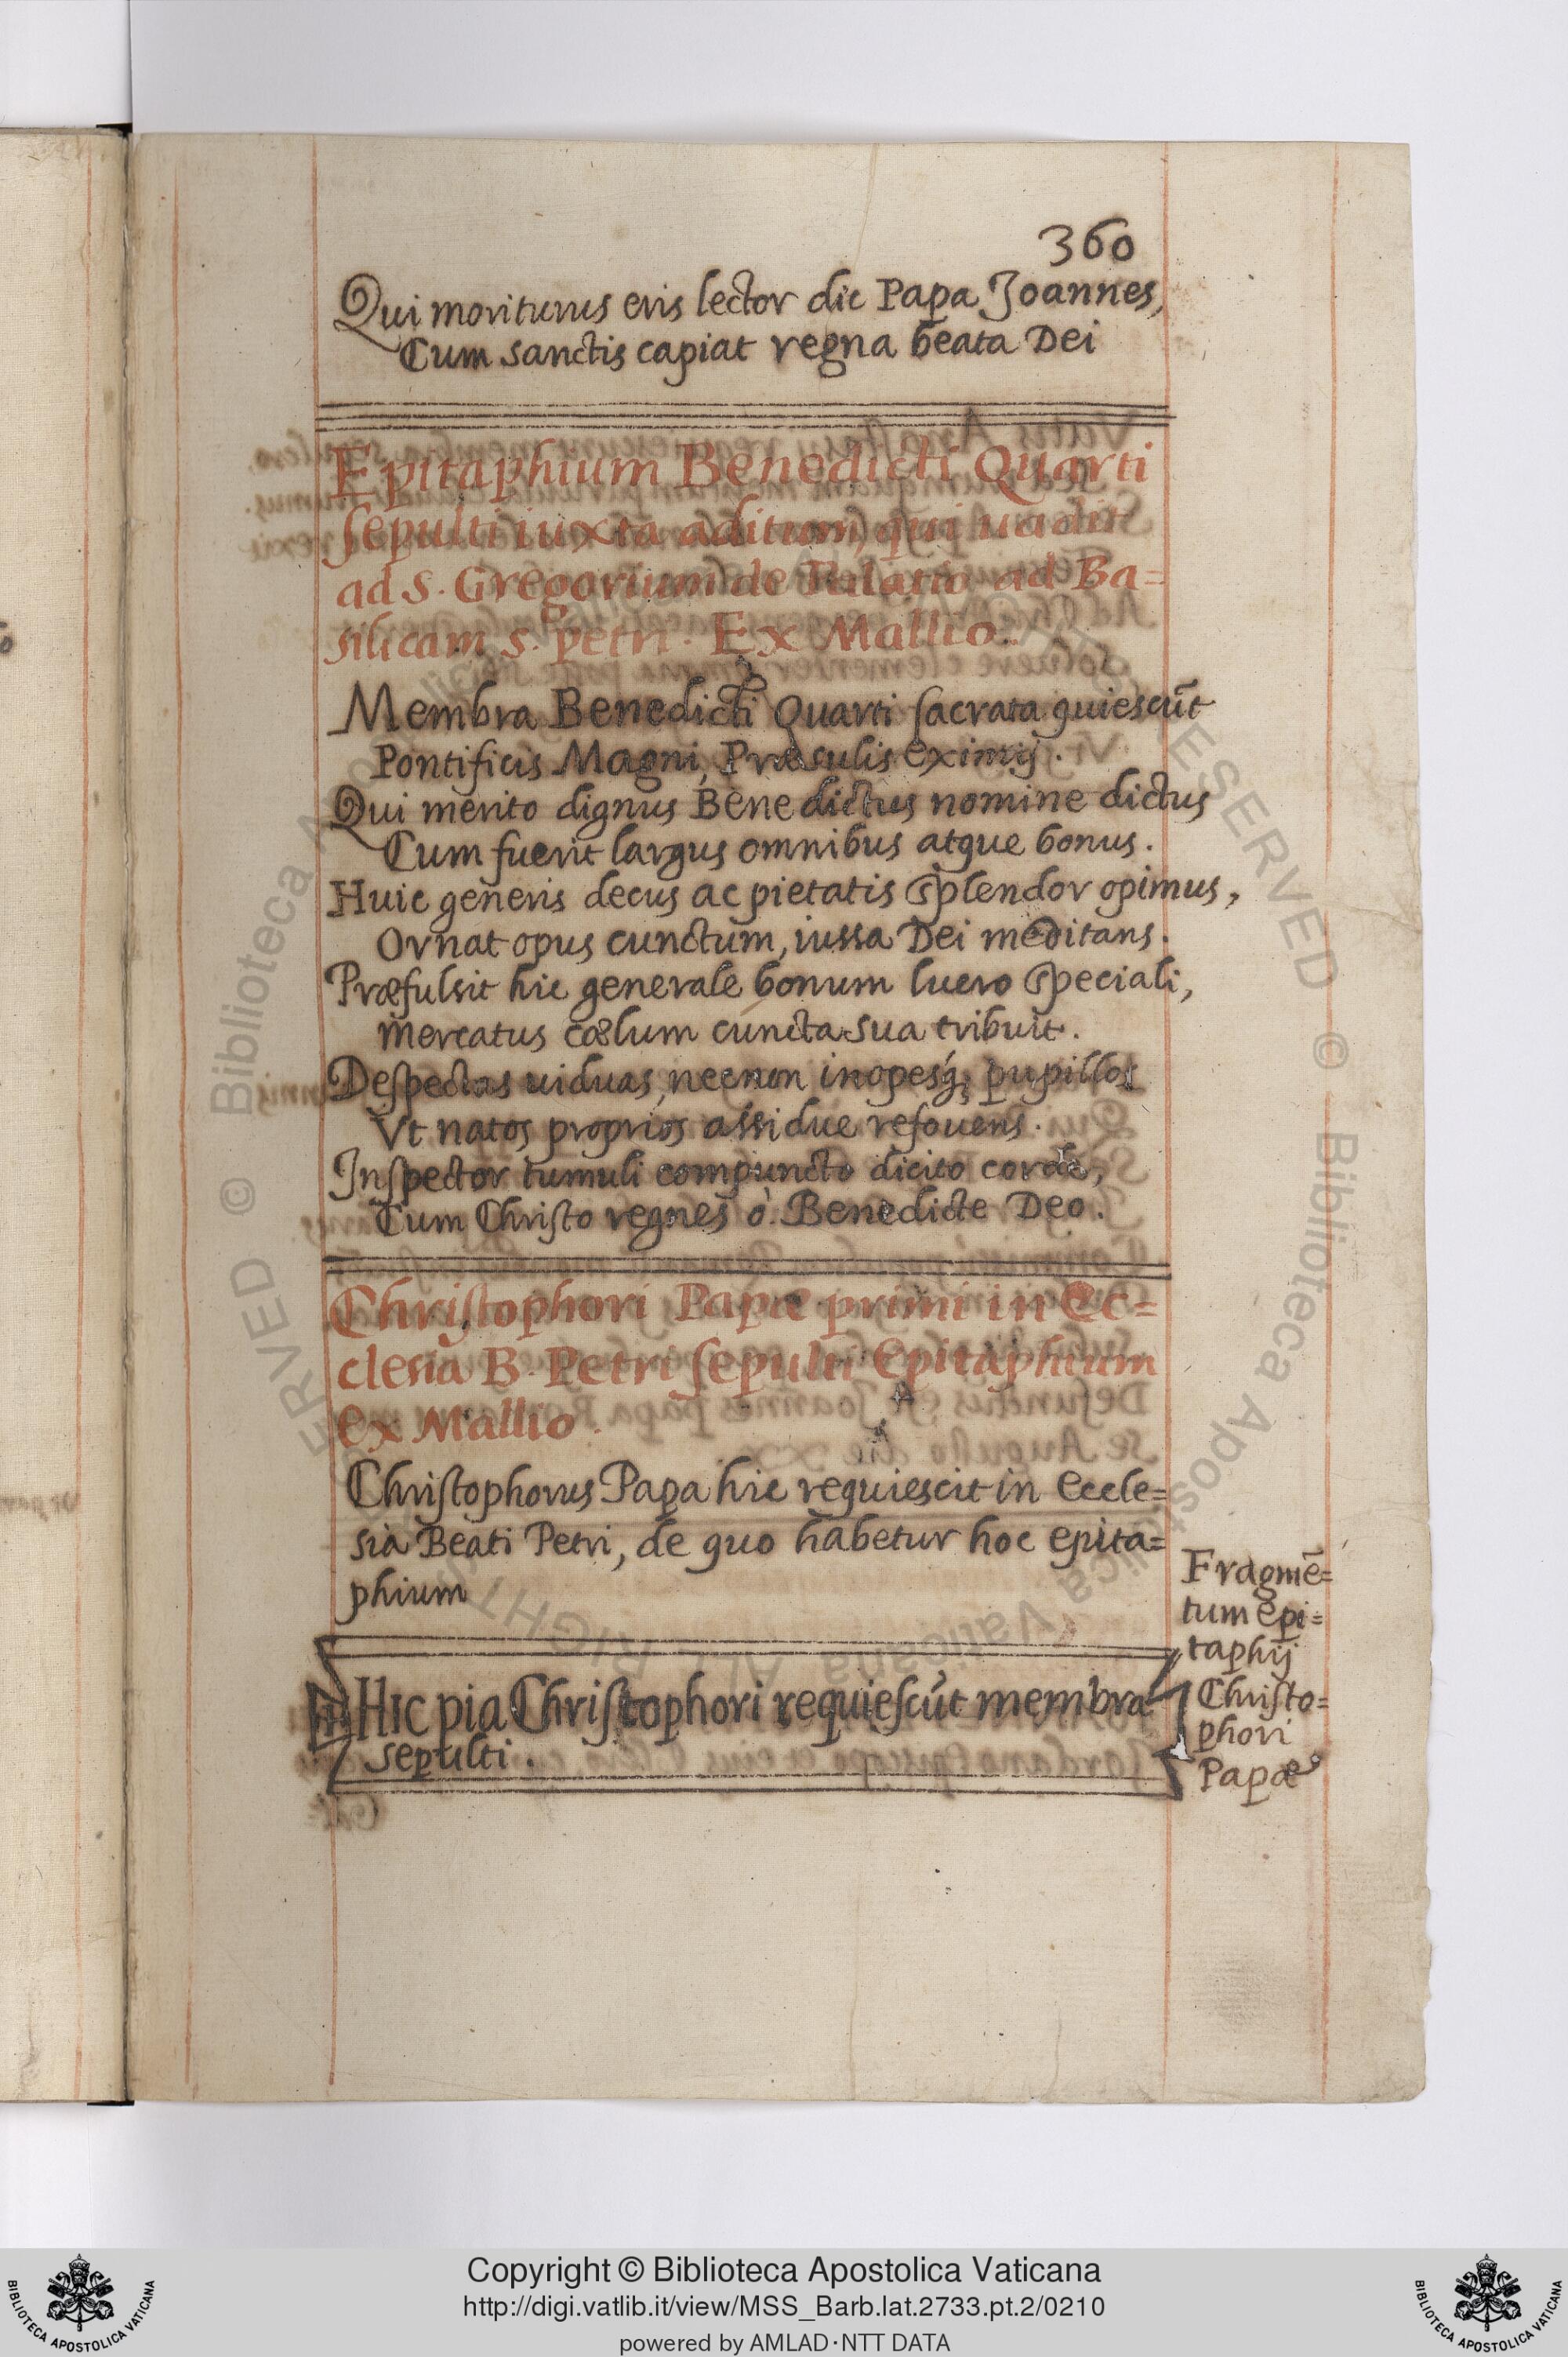 360
Qui moriturus eris lector dic Papa Joannes,
Cum sanctis capiat regna beata Dei
Epitaphium Benedicti Quarti
sepulti iuxta aditum, qui uadit
ad S. Gregorium de Palatio ad Ba=
silicam S. petri. Ex Mallio.
Membra Benedicti Quarti sacrata quiescūt
Pontificis Magni, Præsulis eximij.
Qui merito dignus Benedictus nomine dictus
Cum fuerit largus omnibus atque bonus.
Huic generis decus ac pietatis splendor opimus,
Ornat opus cunctum, iussa Dei meditans.
Præfulsit hic generale bonum lucro speciali,
mercatus cœlum cuncta sua tribuit.
Despectas uiduas, necnon inopesq; pupillos
Vt natos proprios assidue refouens.
Inspector tumuli compuncto dicito corde,
Cum Christo regnes ò Benedicte Deo.
Christophori Papæ primi in Ec=
clesia B. Petri sepulti Epitaphium
Ex Mallio.
Christophorus Papa hic requiescit in Eccle=
sia Beati Petri, de quo habetur hoc epita=
phium
HIC pia Christophori requiescūt membra
sepulti.
Fragmē=
tum Epi=
taphij
Christo=
phori
Papæ
Copyright © Biblioteca Apostolica Vaticana
http://digi.vatlib.it/view/MSS_Barb.lat.2733.pt.2/0210
powered by AMLAD·NTT DATA
BIBLIOTECA APOSTOLICA VATICANA
BIBLIOTECA APOSTOLICA VATICANA